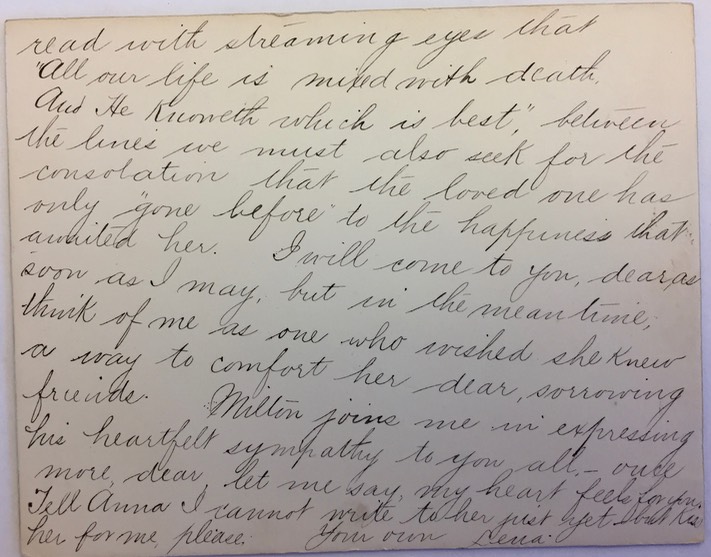 read with streaming eyes that
"All our life is mixed with death,
And He Knoweth which is best", between
the lines we must also seek for the
consolation that the loved one has
only "gone before" to the happiness that
awaited her. I will come to you, dear, as
soon as I may, but in the meantime,
think of me as one who wished she knew
a way to comfort her dear, sorrowing
friends. Milton joins me in expressing
his heartfelt sympathy to you all,- once
more, dear, let me say, my heart feels for you.
Tell Anna I cannot write to her just yet but Kiss
her for me, please. Your own Lena.